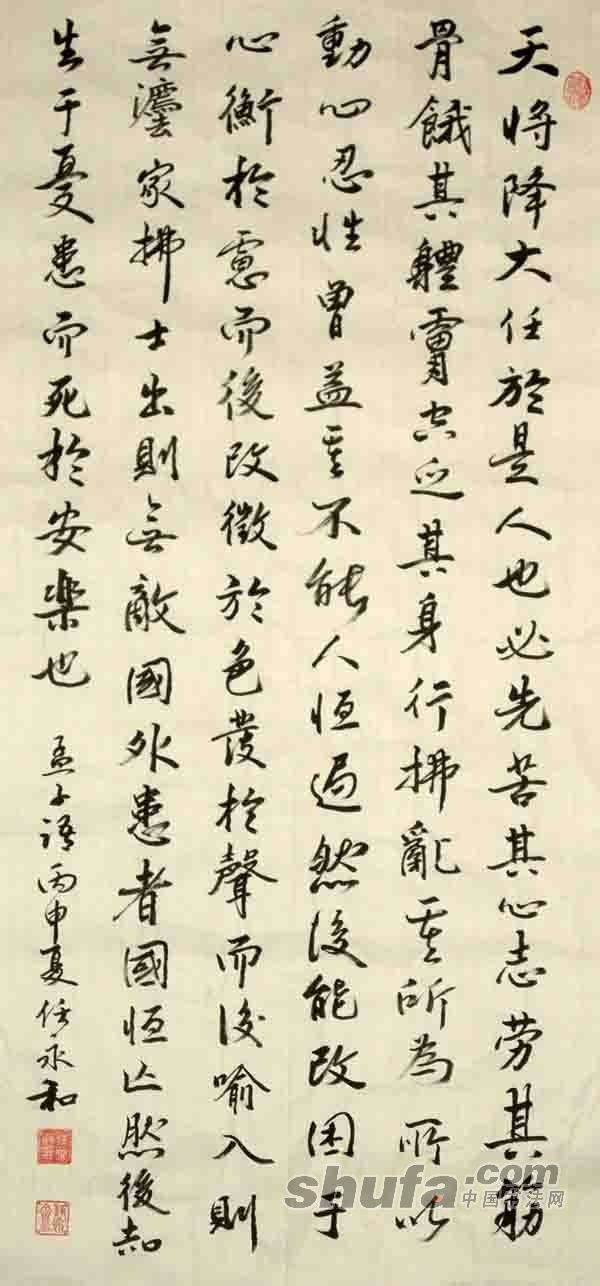 天将降大任於是人也必先苦其心志劳其筋
骨餓其體膚空乏其身行拂亂其所為所以
動心忍性曾益其不能人恒過然後能改困于
心衡於慮而後改徵於色發於聲而後喻入則
無灋家拂士出則無敵國外患者國恒亡然後知
生于憂患而死於安樂也
孟子語丙申夏任永和
shufa.com
中国书法网